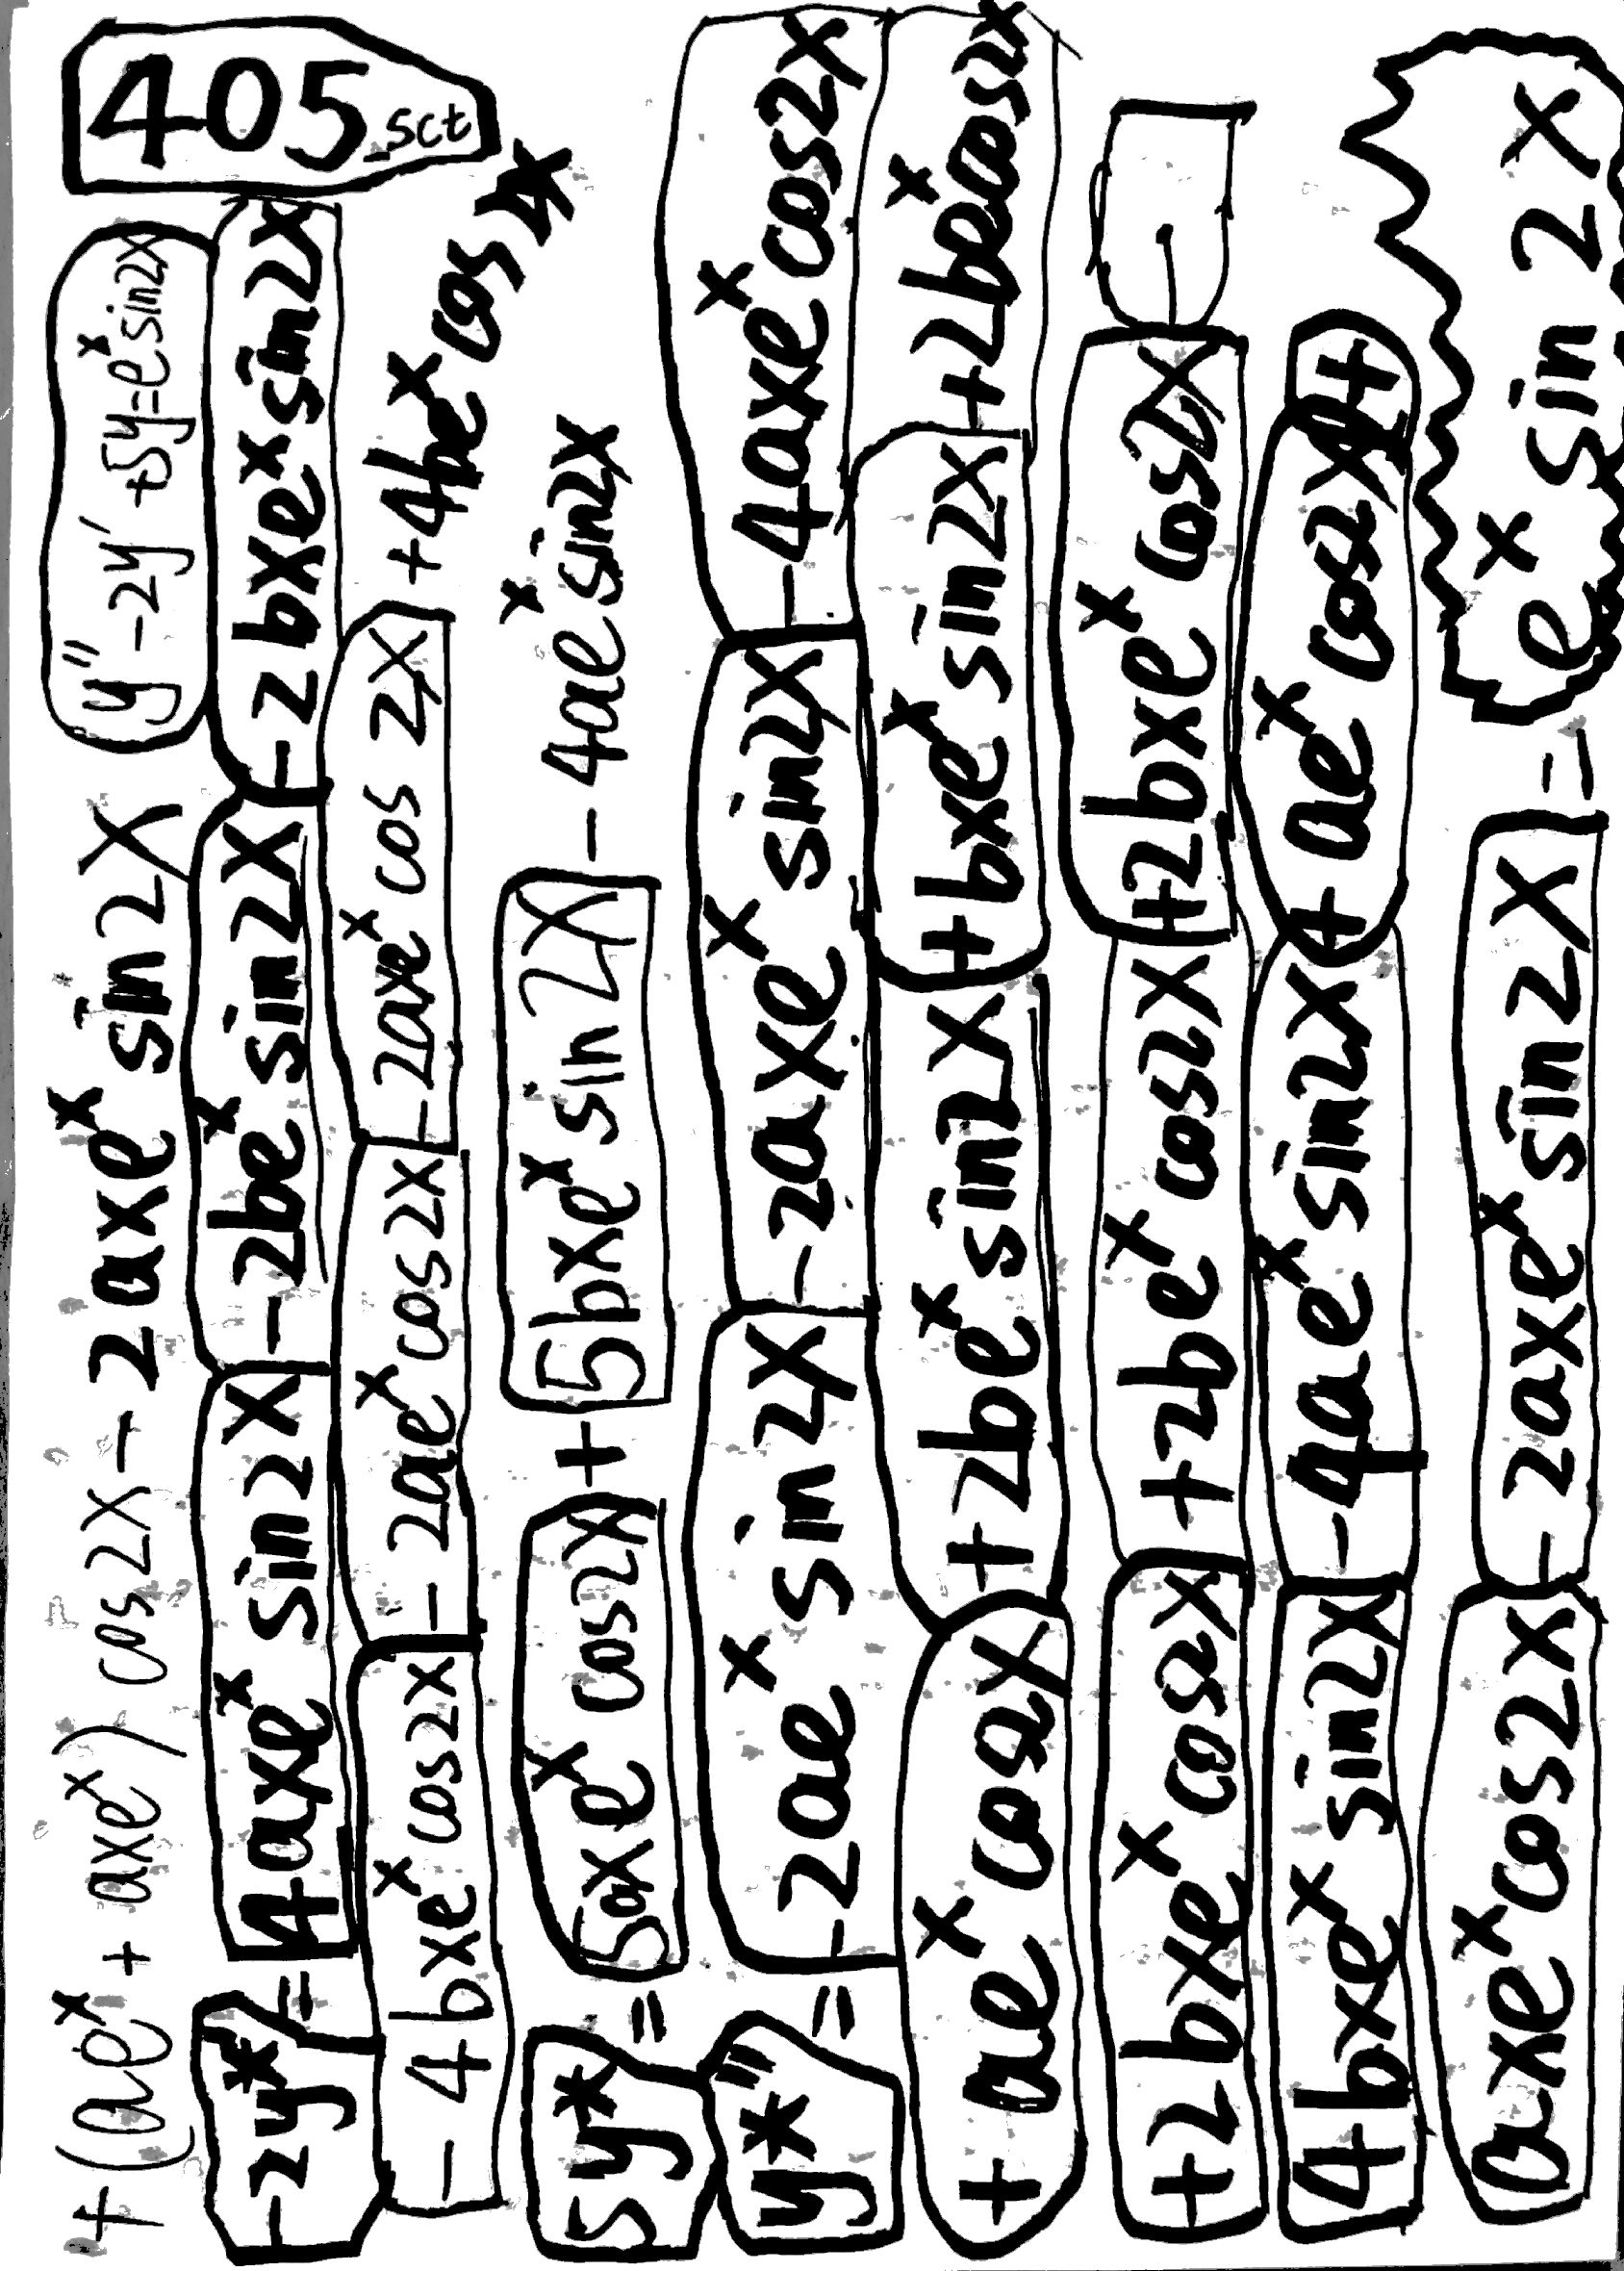 405.sct
y'' - 2y' + 5y = e^x sin2x
+ (ae^x + axe^x) cos2x - 2axe^x sin2x
-2y*' = 4axe^x sin2x - 2be^x sin2x - 2bxe^x sin2x
- 4bxe^x cos2x - 2ae^x cos2x - 2axe^x cos 2x + 4be^x cos
5y* = 5axe^x cos2x + 5bxe^x sin2x - 4ae^x sin2x
y*'' = -2ae^x sin2x - 2axe^x sin2x - 4axe^x cos2x
+ ae^x cos2x + 2be^x sin2x + bxe^x sin2x + 2be^x cos2x
+2bxe^x cos2x + 2be^x cos2x + 2bxe^x cos2x -
4bxe^x sin2x - 4ae^x sin2x + ae^x cos2x +
axe^x cos2x - 2axe^x sin2x = e^x sin2x